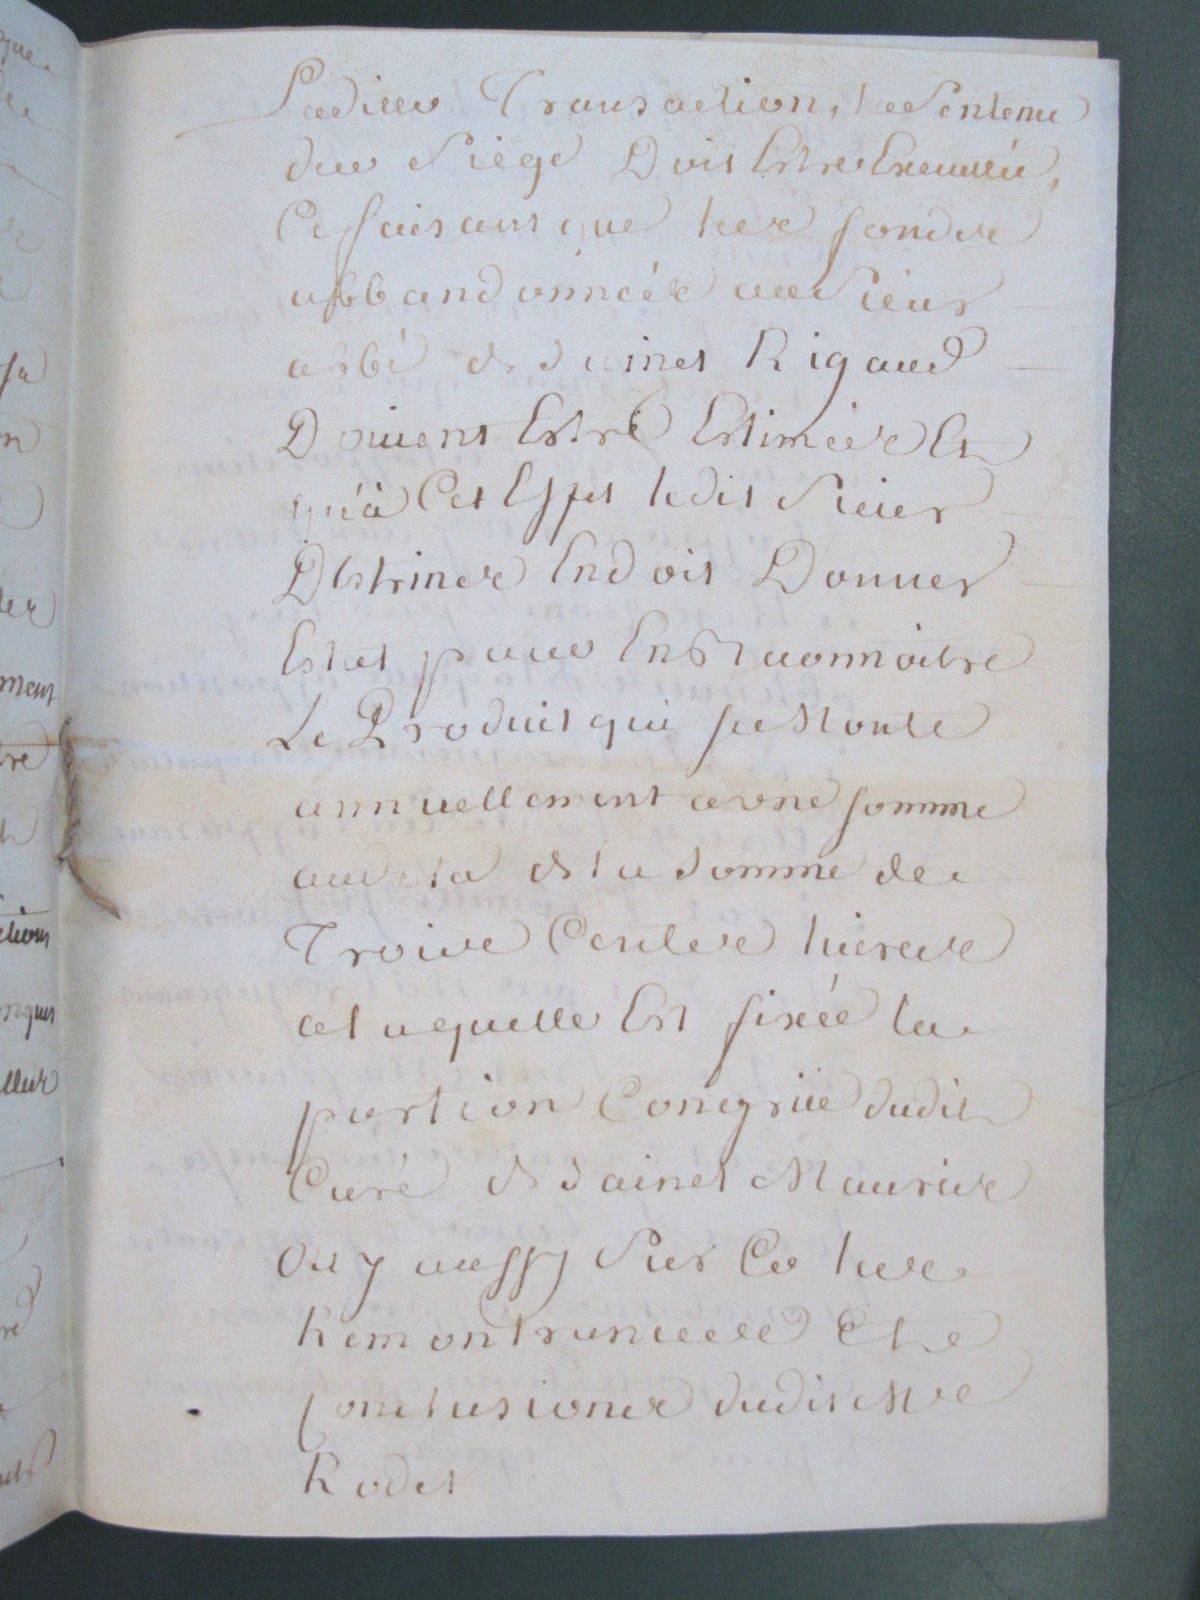 Ladille Transaction, la Sentence
du Siege Doit Estre Executtée,
Ce faisant que les fondes
abbandonnées au Sieur
abbé de Sainct Rigaud
Doivent Estre Estimées Et
qu'à Cet Effet ledit Sieur
Destrines En doit Donner
Estat pour En Reconnoitre
Le Produit qui se Monte
annuellement a une somme
au dela de la Somme de
Troise Centes livres
a laquelle Est fixée la
portion Congrüe dudit
Curé de Sainct Maurice
Ouy aussy Sur Ce les
Remontrances Et
Conclusiones dudit Me
Rodet